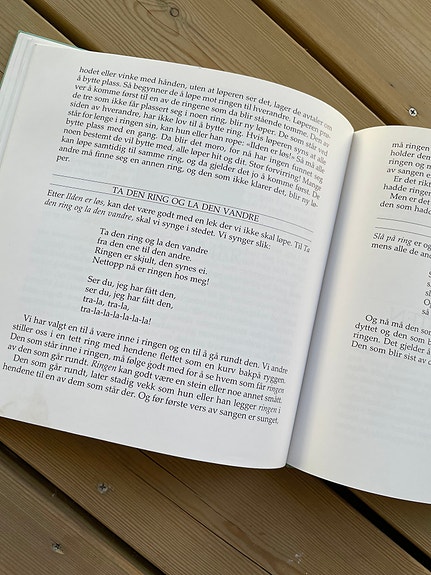 hodet eller vinke med hånden, uten at løperen ser det, lager de avtaler om
å bytte plass. Så begynner de å løpe mot ringen til hverandre. Løperen prø-
ver å komme først til en av de ringene som da blir stående tomme. Dem av
de tre som ikke får plassert seg i noen ring, blir ny løper. De som står ved
siden av hverandre, har ikke lov til å bytte ring. Hvis løperen syns at alle
står for lenge i ringen sin, kan hun eller han rope: «Ilden er løs!» Så må alle
bytte plass med en gang. Da blir det moro, for nå har ingen funnet seg
noen bestemt de vil bytte med, alle løper hit og dit. Stor forvirring! Mange
kan løpe samtidig til samme ring, og da gjelder det jo å komme først. De
andre må finne seg en annen ring, og den som ikke klarer det, blir ny lø-
per.
TA DEN RING OG LA DEN VANDRE
Etter Ilden er løs, kan det være godt med en lek der vi ikke skal løpe. Til Ta
den ring og la den vandre, skal vi synge i stedet. Vi synger slik:
Ta den ring og la den vandre
fra den ene til den andre.
Ringen er skjult, den synes ei.
Nettopp nå er ringen hos meg!
Ser du, jeg har fått den,
ser du, jeg har fått den,
tra-la, tra-la,
tra-la-la-la-la-la-la!
Vi har valgt en til å være inne i ringen og en til å gå rundt den. Vi andre
stiller oss i en tett ring med hendene flettet som en kurv bakpå ryggen.
Den som står inne i ringen, må følge godt med for å se hvem som får ringen
av den som går rundt. Ringen kan godt være en stein eller noe annet smått.
Den som går rundt, later stadig vekk som hun eller han legger ringen i
hendene til en av dem som står der. Og før første vers av sangen er sunget,
må ringen
holder den
ringen væ
Er det rikt
hadde ringen
Men er det
den som had
Slå på ring er og
mens alle de and
Og nå må den som
dyttet og den som b
ringen. Det gjelder å
Den som blir sist av d